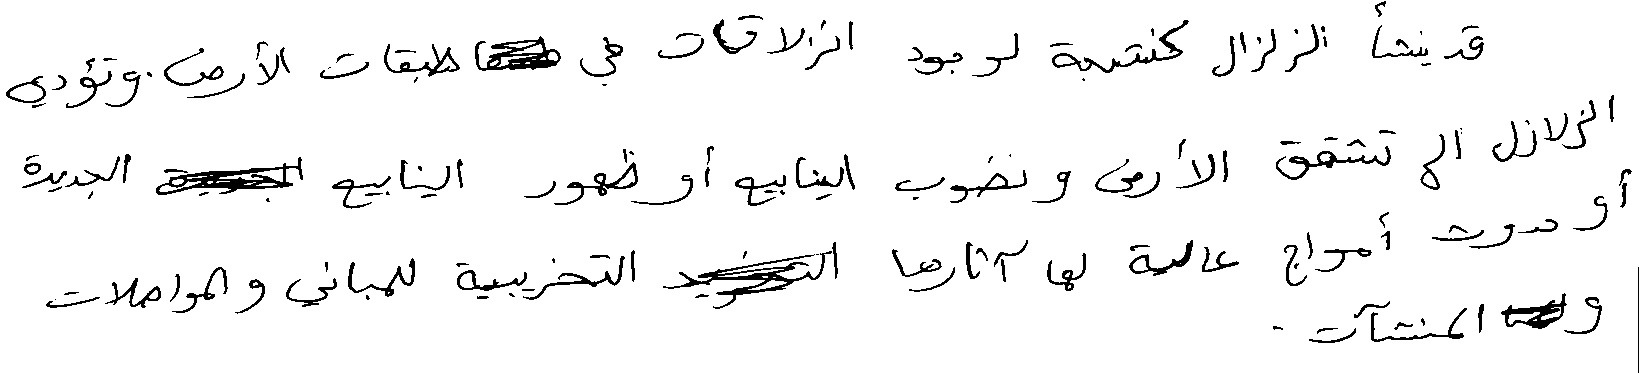 قد ينشأ الزلزال كنتيجة لوجود انزلاقات في طبقات الأرض. وتؤدي
الزلازل الى تشقق الأرض ونضوب الينابيع أو ظهور الينابيع الجديدة
أو حدوث أمواج عالية لها آثارها التخريبية للمباني والمواصلات
و المنشآت.